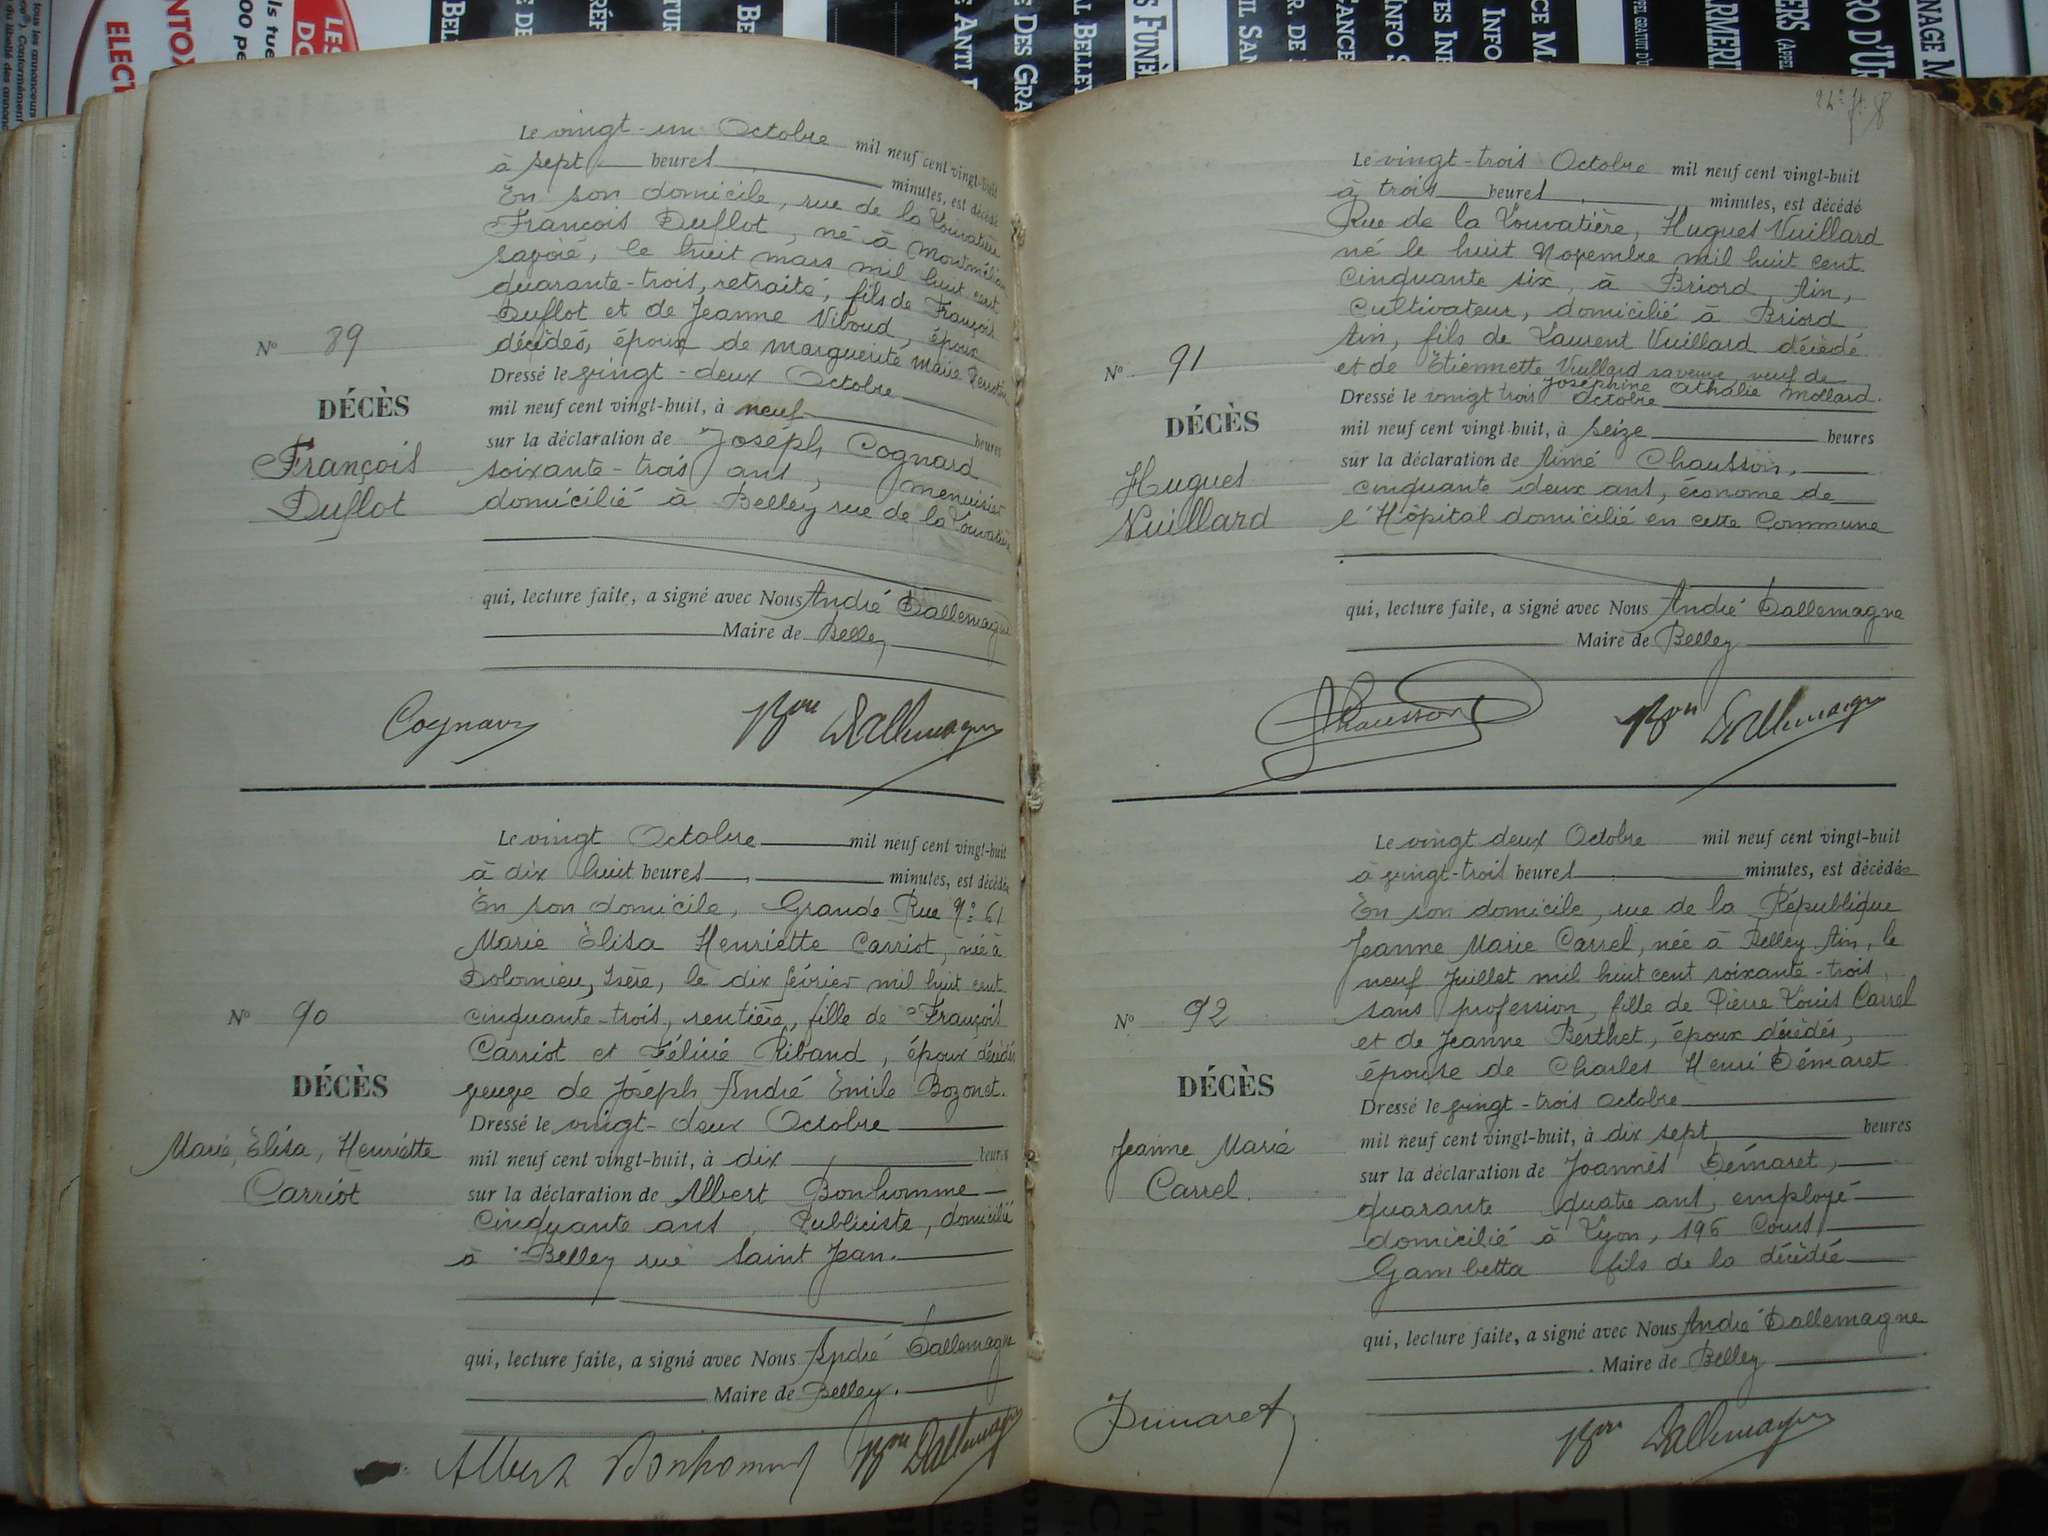 Le vingt-un Octobre mil neuf cent vingt-huit
à sept heures minutes, est décédé
En son domicile, rue de la Louvatière
François Duflot, né à Montmélian
Savoie, le huit mars mil huit cent
quarante-trois, retraité, fils de François
Duflot et de Jeanne Viboud, époux
décédés, époux de Marguerite Marie
Dressé le vingt-deux Octobre
mil neuf cent vingt-huit, à neuf heures
sur la déclaration de Joseph Cognard
soixante-trois ans, menuisier
domicilié à Belley rue de la Louvatière
qui, lecture faite, a signé avec Nous André Dallemagne
Maire de Belley
N° 89
DÉCÈS
François
Duflot
Cognard Bon Dallemagne
Le vingt Octobre mil neuf cent vingt-huit
à dix huit heures minutes, est décédée
En son domicile, Grande Rue N° 61
Marie Élisa Henriette Carriot, née à
Dolomieu, Isère, le dix février mil huit cent
cinquante-trois, rentière, fille de François
Carriot et Félicie Riband, époux décédés
veuve de Joseph André Emile Bozonet.
Dressé le vingt-deux Octobre
mil neuf cent vingt-huit, à dix heures
sur la déclaration de Albert Bonhomme
Cinquante ans, Publiciste, domicilié
à Belley rue Saint Jean.
qui, lecture faite, a signé avec Nous André Dallemagne
Maire de Belley.
N° 90
DÉCÈS
Marie, Élisa, Henriette
Carriot
Albert Bonhomme Bon Dallemagne
Le vingt-trois Octobre mil neuf cent vingt-huit
à trois heures minutes, est décédé
Rue de la Louvatière, Hugues Vuillard
né le huit Novembre mil huit cent
cinquante six, à Briord, Ain,
Cultivateur, domicilié à Briord
Ain, fils de Laurent Vuillard décédé
et de Etiennette Vuillard sa veuve veuf de
Joséphine Athalie Mollard.
Dressé le vingt trois Octobre
mil neuf cent vingt-huit, à seize heures
sur la déclaration de Aimé Chausson,
cinquante deux ans, économe de
l'Hôpital domicilié en cette Commune
qui, lecture faite, a signé avec Nous André Dallemagne
Maire de Belley
N° 91
DÉCÈS
Hugues
Vuillard
Chausson Bon Dallemagne
Le vingt deux Octobre mil neuf cent vingt-huit
à vingt-trois heures minutes, est décédée
En son domicile, rue de la République
Jeanne Marie Carrel, née à Belley, Ain, le
neuf Juillet mil huit cent soixante-trois,
sans profession, fille de Pierre Louis Carrel
et de Jeanne Berthet, époux décédés,
épouse de Charles Henri Démaret
Dressé le vingt-trois Octobre
mil neuf cent vingt-huit, à dix sept heures
sur la déclaration de Joannès Démaret,
quarante quatre ans, employé
domicilié à Lyon, 196 Cours
Gambetta fils de la décédée
qui, lecture faite, a signé avec Nous André Dallemagne
Maire de Belley
N° 92
DÉCÈS
Jeanne Marie
Carrel.
Démaret Bon Dallemagne